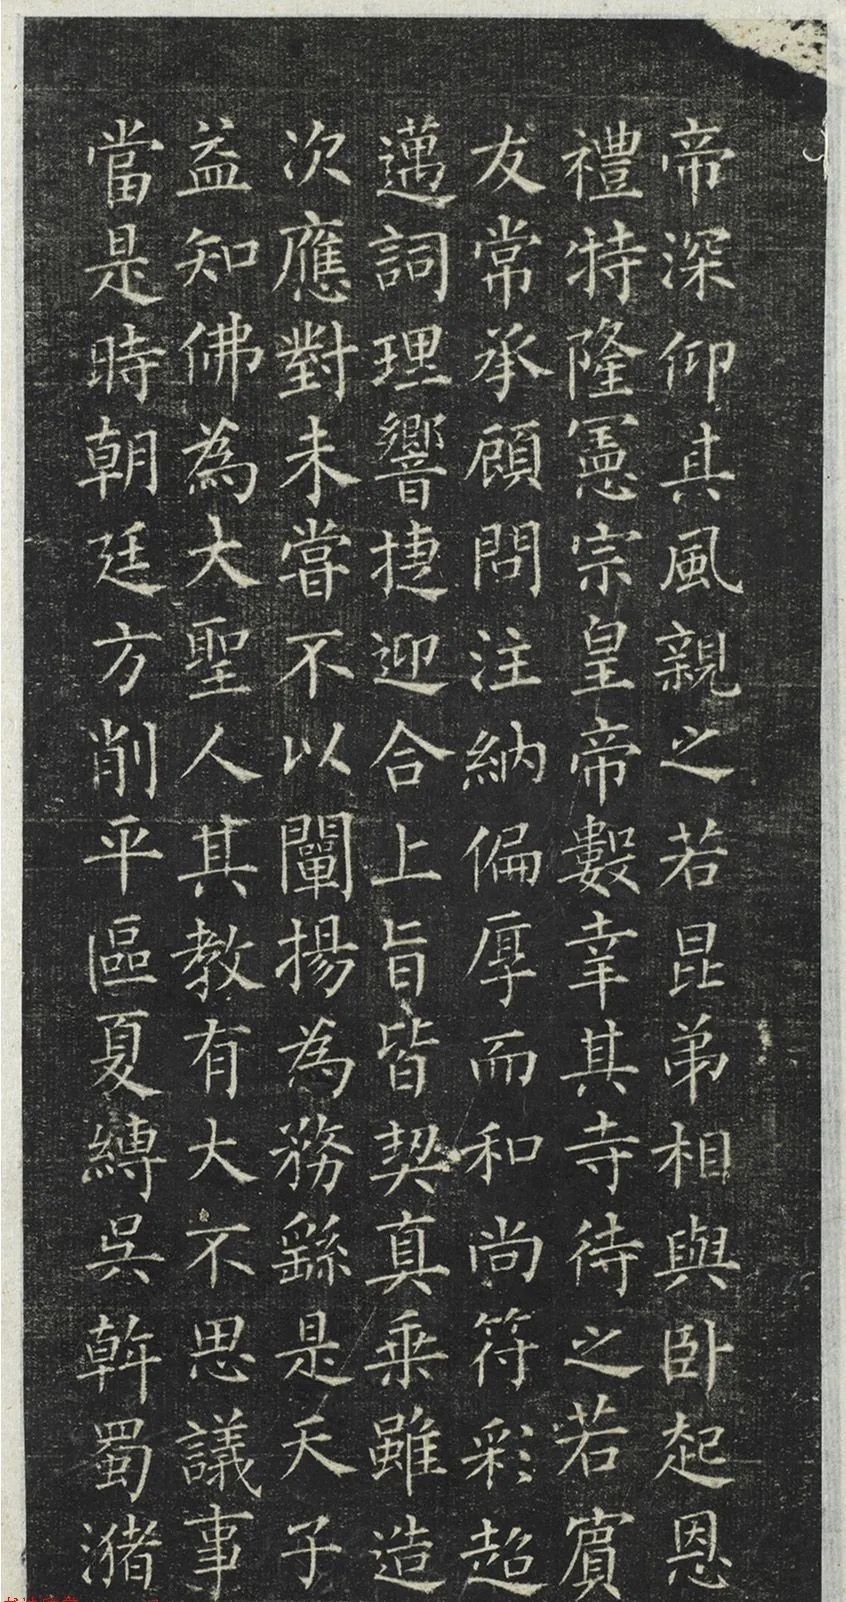 帝深仰其風親之若昆弟相與卧起恩
禮特隆憲宗皇帝數幸其寺待之若賓
友常承顧問注納偏厚而和尚符彩超
邁詞理響捷迎合上旨皆契真乘雖造
次應對未嘗不以闡揚為務繇是天子
益知佛為大聖人其教有大不思議事
當是時朝廷方削平區夏縛吳斡蜀瀦